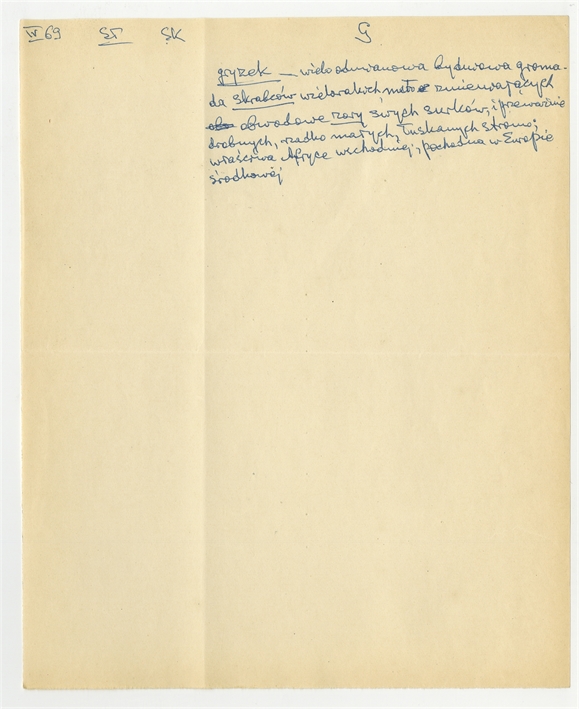 IV 69 ST SK G
gryzek — wieloodmianowa bydwowa groma-
da skrabców wielorakich zmieniających
obwodowe zory swych surków, i przeważnie
drobnych, rzadko małych, łuskanych stromo;
właściwa Afryce wschodniej, pochodna w Europie
środkowej